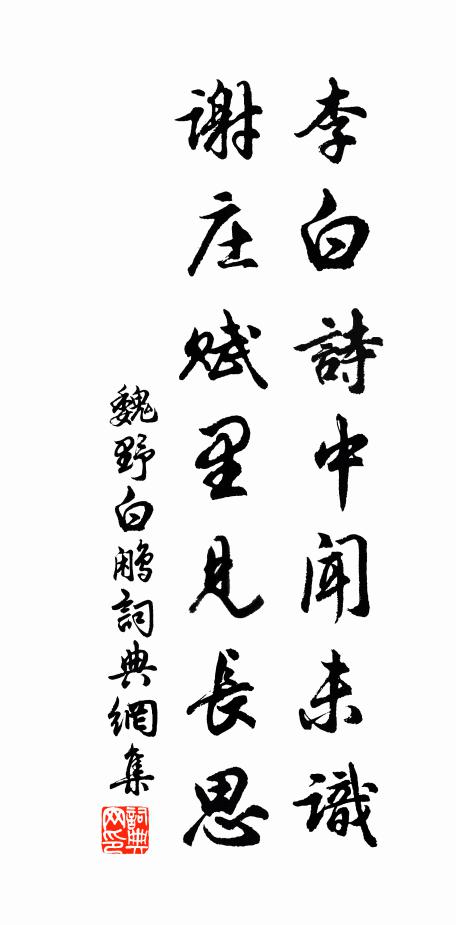 李白詩中聞未識
谢庄赋里見長思
魏野白鷴詞典網集
詞典
网印